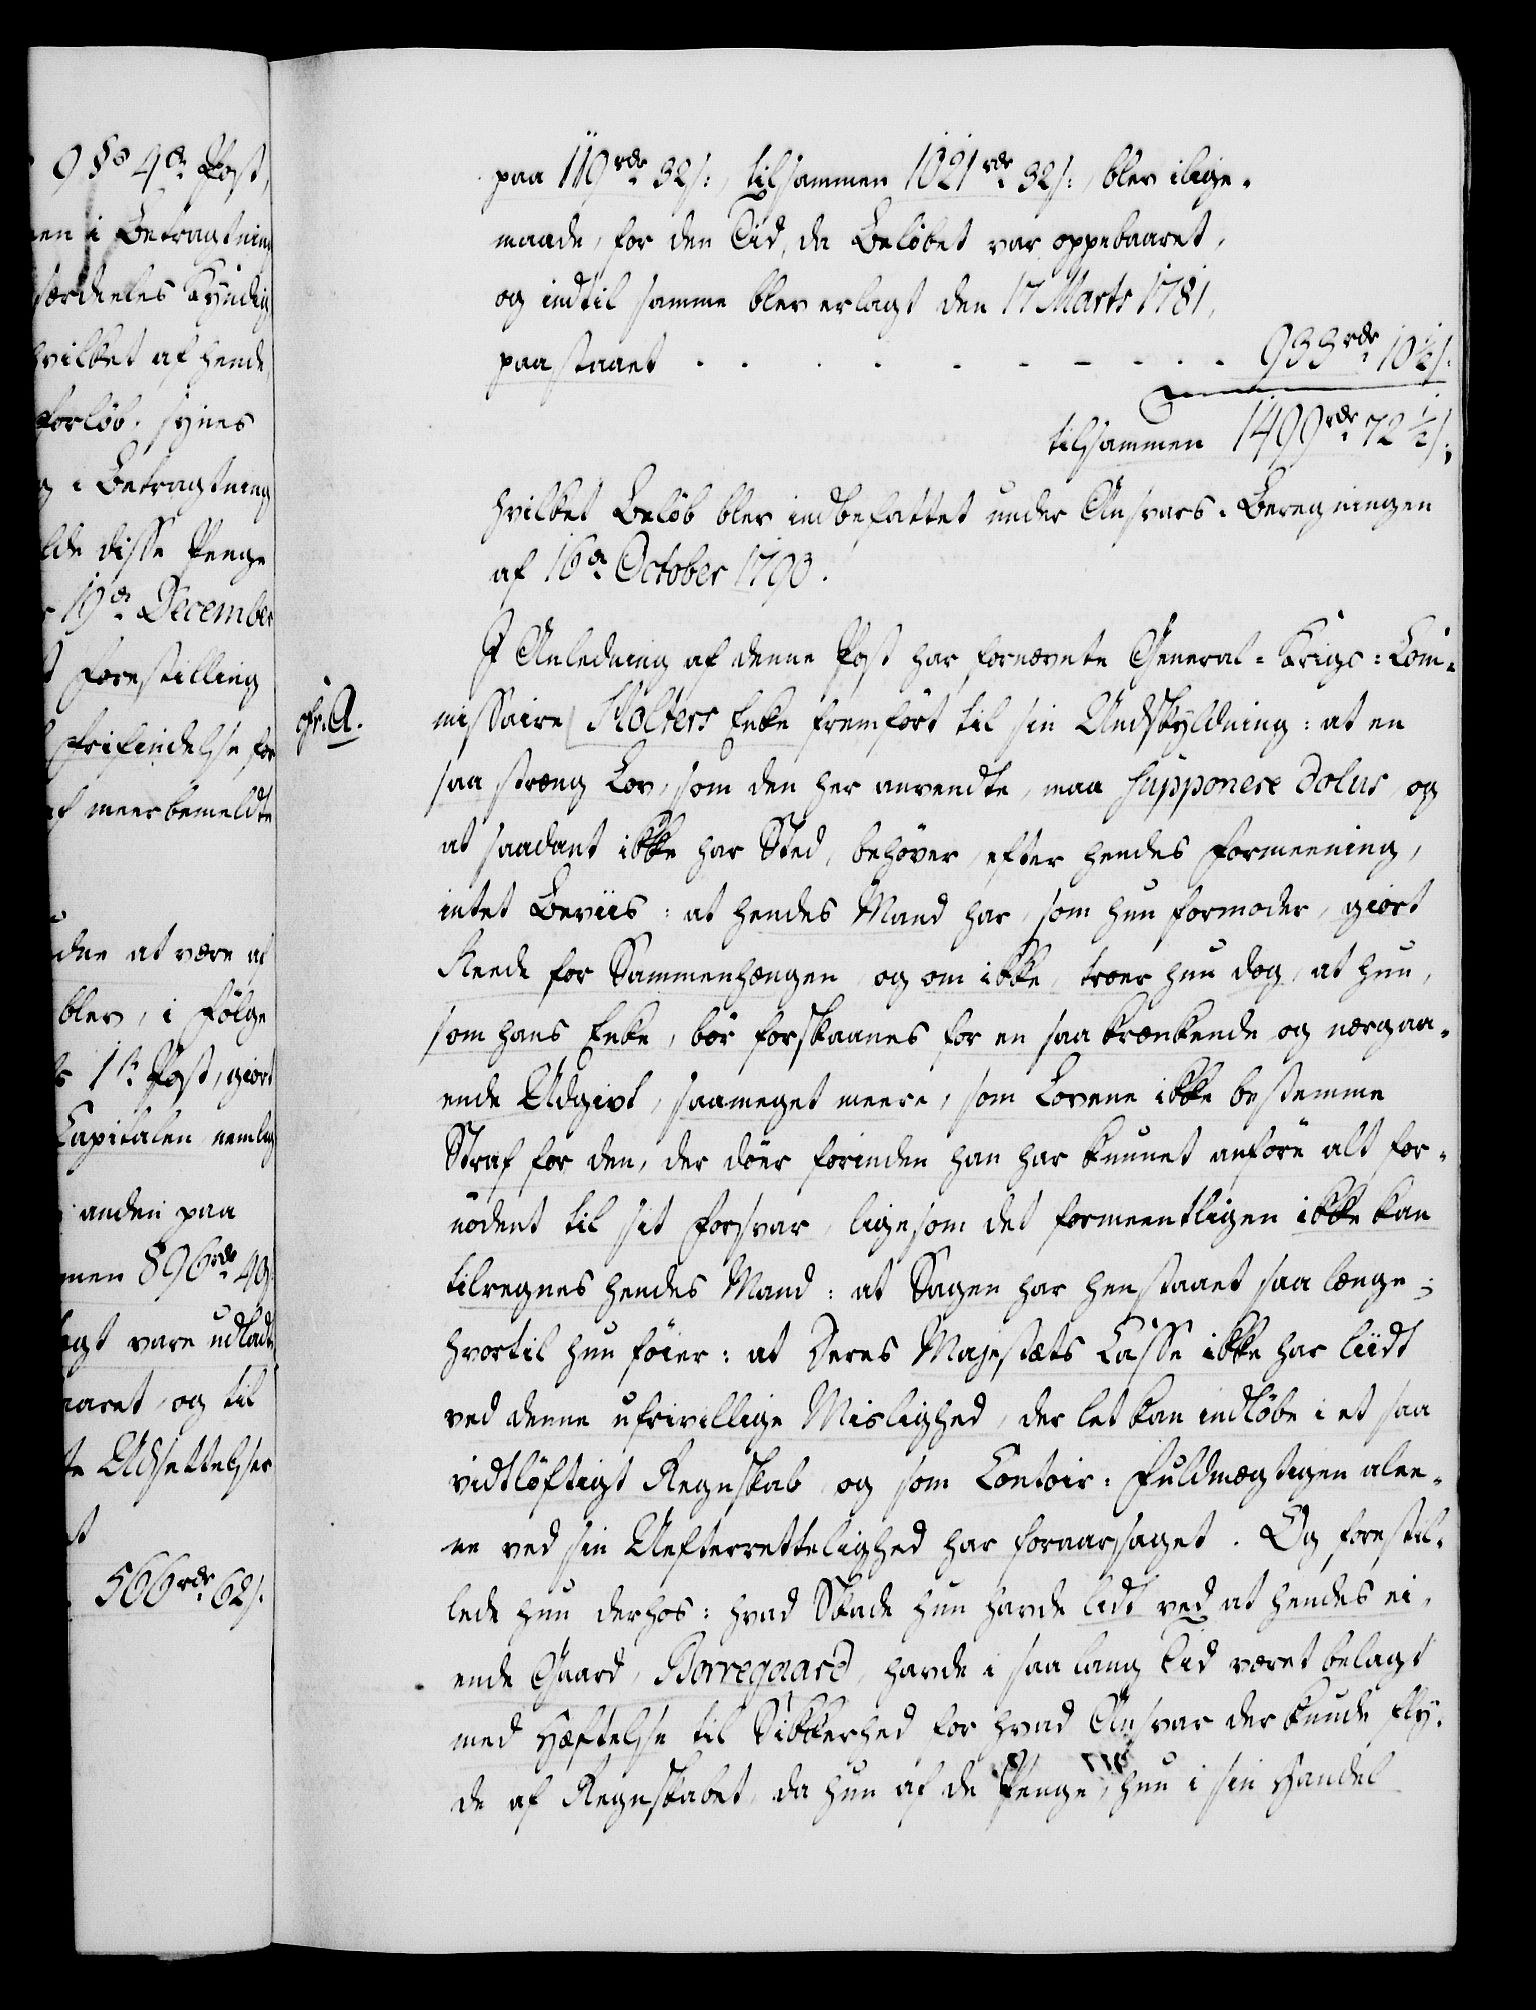 9 §s 4de Post,
en i Betragtning
særdeeles kyndig
hvilket af hende
forløb. synes
g i Betragtning
lde disse Penge
19de December
t Forestilling
Frifindelse for
af meerbemeldte
dne at være af
blev, i Følge
1ste Post, giort
Capitalen, nemlig
anden paa
men 896rdr 49
lagt være udladt
aaret, og til
te Udsettelser
st
566rdr 62s.
paa 119rdr 32s:, tilsammen 1021rdr 32s:, blev ilige-
maade, for den Tid, da Beløbet var oppebaaret,
og indtil samme blev erlagt den 17 Marts 1781,
paastaaet . . . . - - - . . . 933rdr 10½s.
tilsammen 1499rdr 72½s;
hvilket Beløb blev indbefattet under Ansvars-Beregningen
af 16de October 1793.
I Anledning af denne Post har fornævnte General-Krigs-Com-
cfr. A.
missaire Holters Enke fremført til sin Undskyldning: at en
saa stræng Lov, som den her anvendte, maa supponere dolus, og
at saadant ikke har Sted, behøver, efter hendes Formeening,
intet Beviis: at hendes Mand har, som hun formoder, giort
Reede for Sammenhængen, og om ikke, troer hun dog, at hun,
som hans Enke, bør forskaanes for en saa krænkende og nærgaa-
ende Udgivt, saameget meere, som Lovene ikke bestemme
Straf for den, der døer forinden han har kunnet anføre alt for-
nødent til sit Forsvar, ligesom det formeentligen ikke kan
tilregnes hendes Mand: at Sagen har henstaaet saa længe;
hvortil hun føier: at Deres Majestæts Casse ikke har liidt
ved denne ufrivillige Mislighed, der let kan indløbe i et saa
vidtløftigt Regnskab, og som Contoir-Fuldmægtigen alee-
ne ved sin Uefterrettelighed har foraarsaget. Og forestil-
lede hun derhos: hvad Skade hun havde lidt ved at hendes ei-
ende Gaard, Borregaard, havde i saa lang Tid været belagt
med Hæftelse til Sikkerhed for hvad Ansvar der kunde fly-
de af Regnskabet, da hun af de Penge, hun i sin Handel